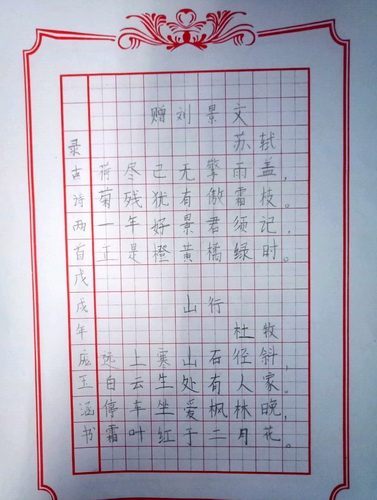 赠刘景文
苏轼
荷尽已无擎雨盖，
菊残犹有傲霜枝。
一年好景君须记，
正是橙黄橘绿时。
山行
杜牧
远上寒山石径斜，
白云生处有人家。
停车坐爱枫林晚，
霜叶红于二月花。
录古诗两首戊戌年庞玉涵书